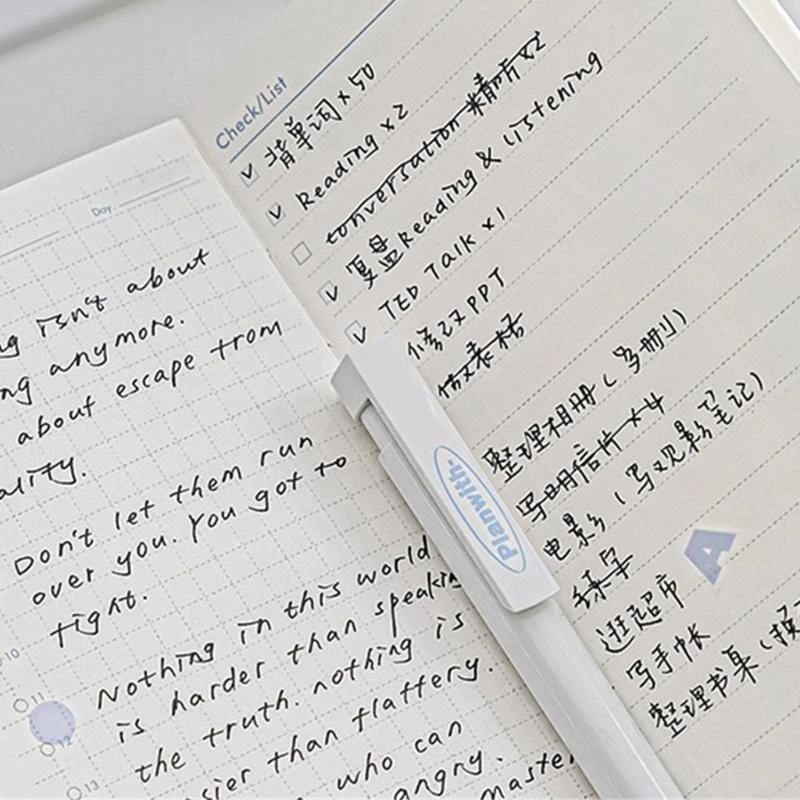 Day
isn't about
anymore.
about escape from
Don't let them run
over you. You got to
fight.
Nothing in this world
is harder than speaking
the truth. nothing is
easier than flattery.
who can
angry.
master
10
11
12
13
Check/List
背单词×50
Reading ×2
conversation 精听×2
复盘Reading & Listening
TED Talk ×1
修改PPT
做表格
整理相册(多册)
写明信片×4
电影(写观影笔记)
练字
逛超市
写手帐
整理书桌(
Planwith.
A